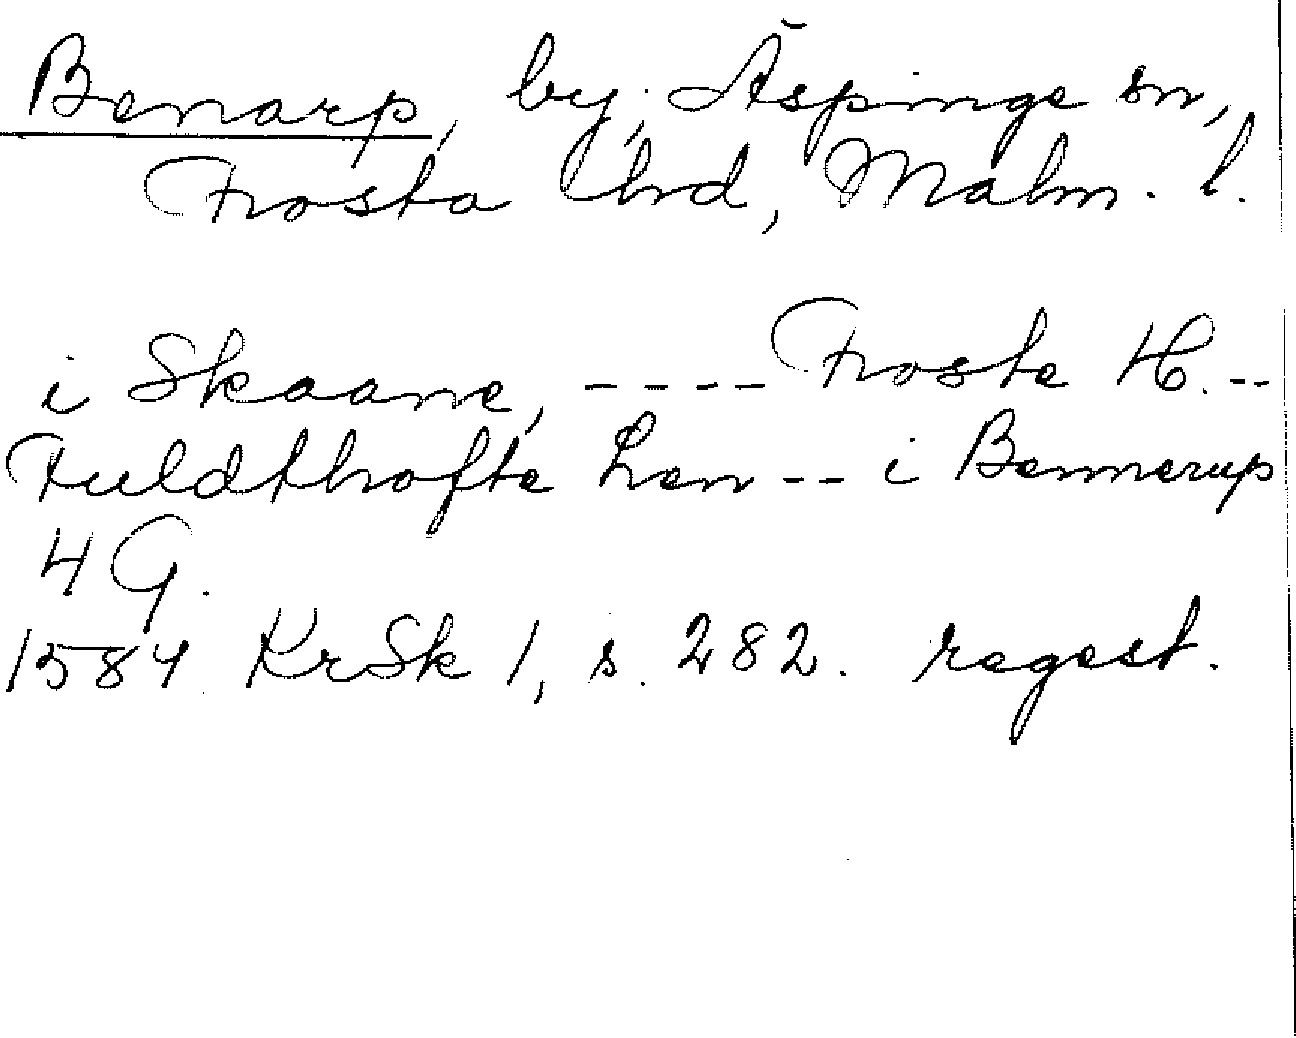 Benarp, by, Äspinge sn,
Frosta hd, Malm. l.
i Skaane, ---- Froste H. --
Fuldthofte Len -- i Bennerup
4 G.
1584 KrSk 1, s. 282. regest.